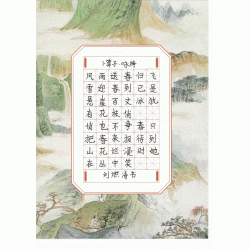 卜算子·咏梅
风雨送春归飞
雪迎春到已是
悬崖百丈冰犹
有花枝俏
俏也不争春只
把春来报待到
山花烂漫时她
在丛中笑